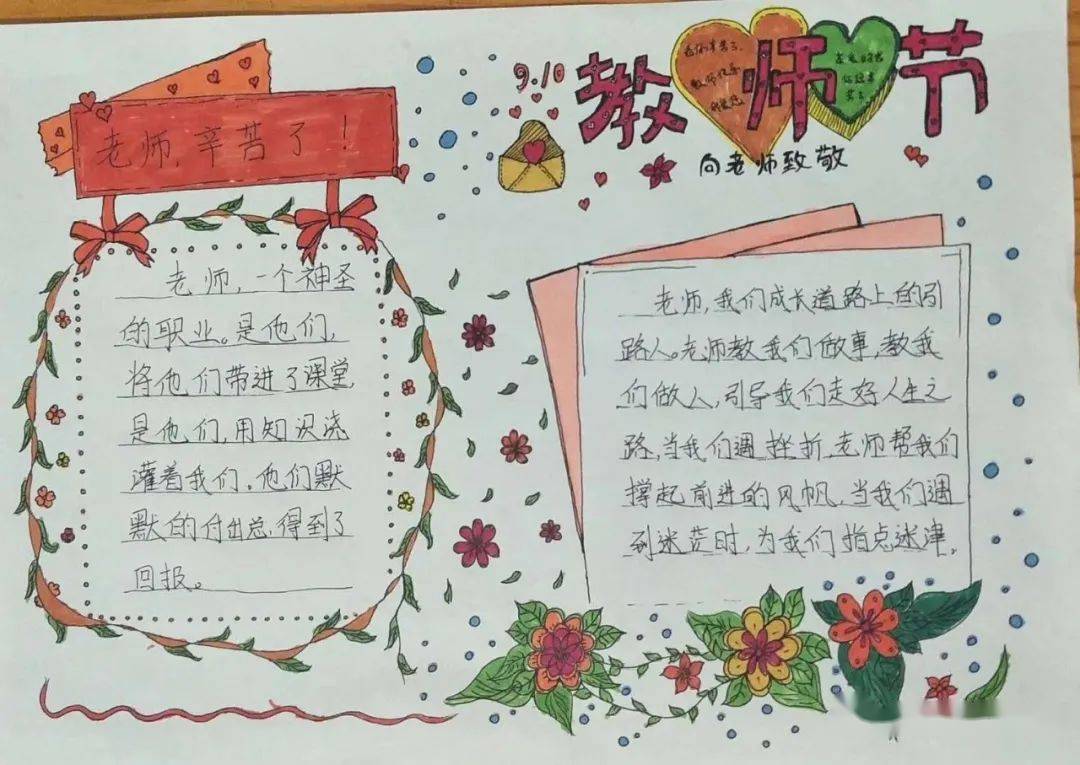 老师,辛苦了!
9.10
教师节
老师辛苦了、
教师快乐
向老师致敬
老师,一个神圣
的职业。是他们,
将他们带进了课堂,
是他们,用知识浇
灌着我们。他们默
默的付出总,得到了
回报。
老师,我们成长道路上的引
路人。老师教我们做事,教我
们做人,引导我们走好人生之
路,当我们遇挫折,老师帮我们
撑起前进的风帆,当我们遇
到迷茫时,为我们指点迷津。